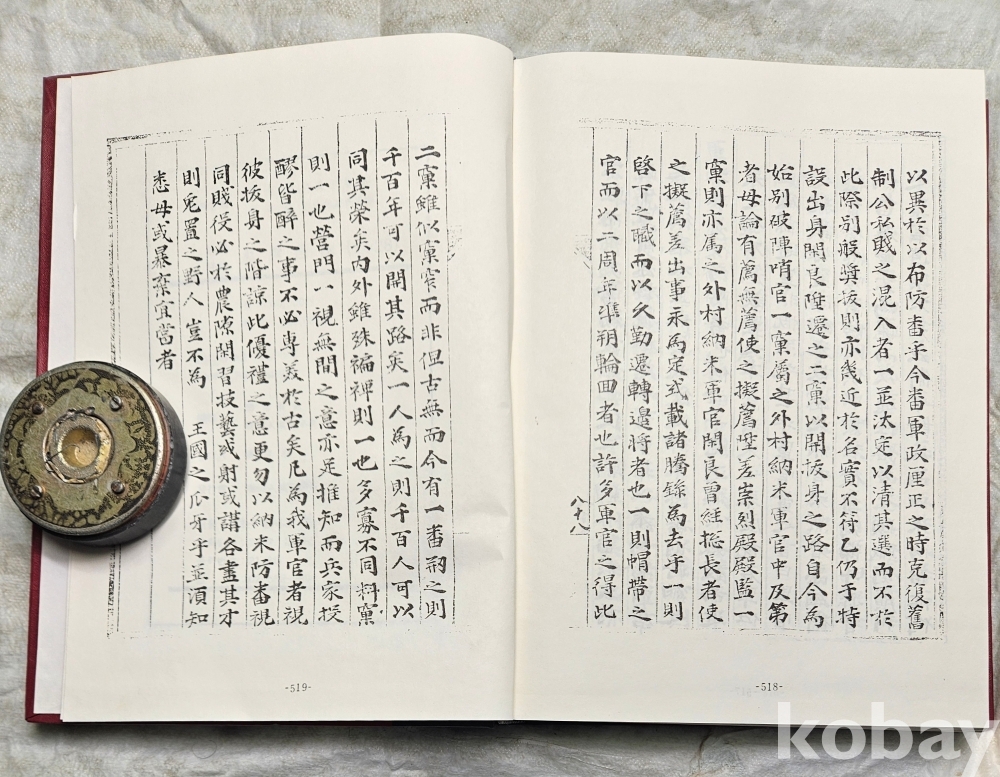 以異於以布防番乎今番軍政厘正之時克復舊
制公私賤之混入者一並汰定以清其選而不於
此際別般奬拔則亦幾近於名實不符乙仍于特
設出身閑良陞遷之二窠以開拔身之路自今爲
始別破陣哨官一窠屬之外村納米軍官中及第
者毋論有薦無薦使之擬薦陞差崇烈殿殿監一
窠則亦屬之外村納米軍官閑良曾經摠長者使
之擬薦差出事永爲定式載諸謄錄爲去乎一則
啓下之職而以久勤遷轉邊將者也一則帽帶之
官而以二周年準朔輪回者也許多軍官之得此
八十八
-518-
二窠雖似窠窄而非但古無而今有一番刱之則
千百年可以開其路矣一人爲之則千百人可以
同其榮矣內外雖殊褊裨則一也多寡不同料窠
則一也營門一視無間之意亦足推知而兵家投
醪皆醉之事不必專美於古矣凡爲我軍官者視
彼拔身之階諒此優禮之意更勿以納米防番視
同賤役必於農隙閑習技藝或射或講各盡其才
則兎置之野人豈不爲 王國之爪牙乎並須知
悉毋或暴棄宜當者
-519-
kobay